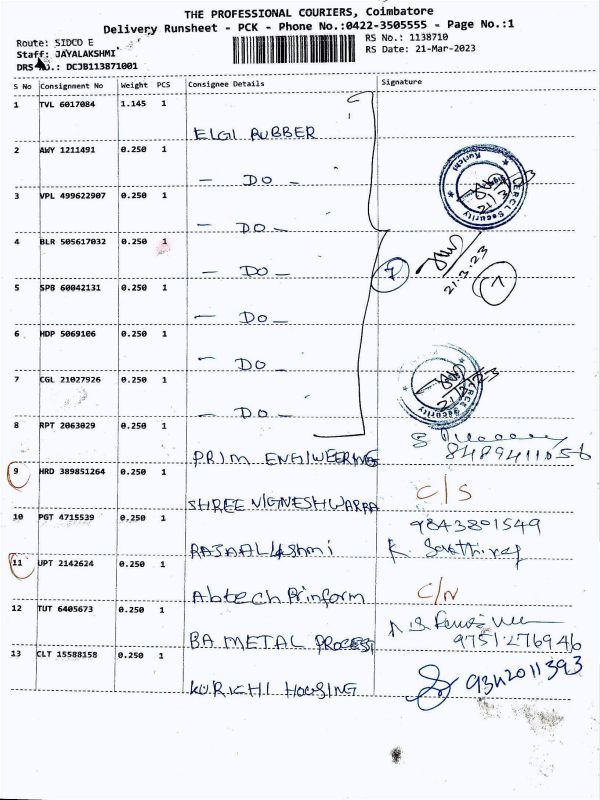 THE PROFESSIONAL COURIERS, Coimbatore
Delivery Runsheet - PCK - Phone No.:0422-3505555 - Page No.:1
Route: SIDCO E
RS No.: 1138710
Staff: JAYALAKSHMI
RS Date: 21-Mar-2023
DRS No.: DCJB113871001
S No Consignment No Weight PCS Consignee Details Signature
1 TVL 6017084 1.145 1
ELGI RUBBER
2 AWY 1211491 0.250 1
— DO —
3 VPL 499622907 0.250 1
— DO —
4 BLR 505617032 0.250 1
— DO —
7
21.3.23
7
5 SPB 60042131 0.250 1
— DO —
6 HDP 5069106 0.250 1
— DO —
7 CGL 21027926 0.250 1
— DO —
8 RPT 2063029 0.250 1
PRIM ENGIWEERING
8489411056
9 HRD 389851264 0.250 1
C/S
SHREE VIGNESHWARAA
10 PGT 4715539 0.250 1
9843801549
RAJAALAKshmi
11 UPT 2142624 0.250 1
C/N
Abtech Prinform
12 TUT 6405673 0.250 1
BA METAL PROCESS
9751276946
13 CLT 15588158 0.250 1
9342011393
KURICHI HOUSING